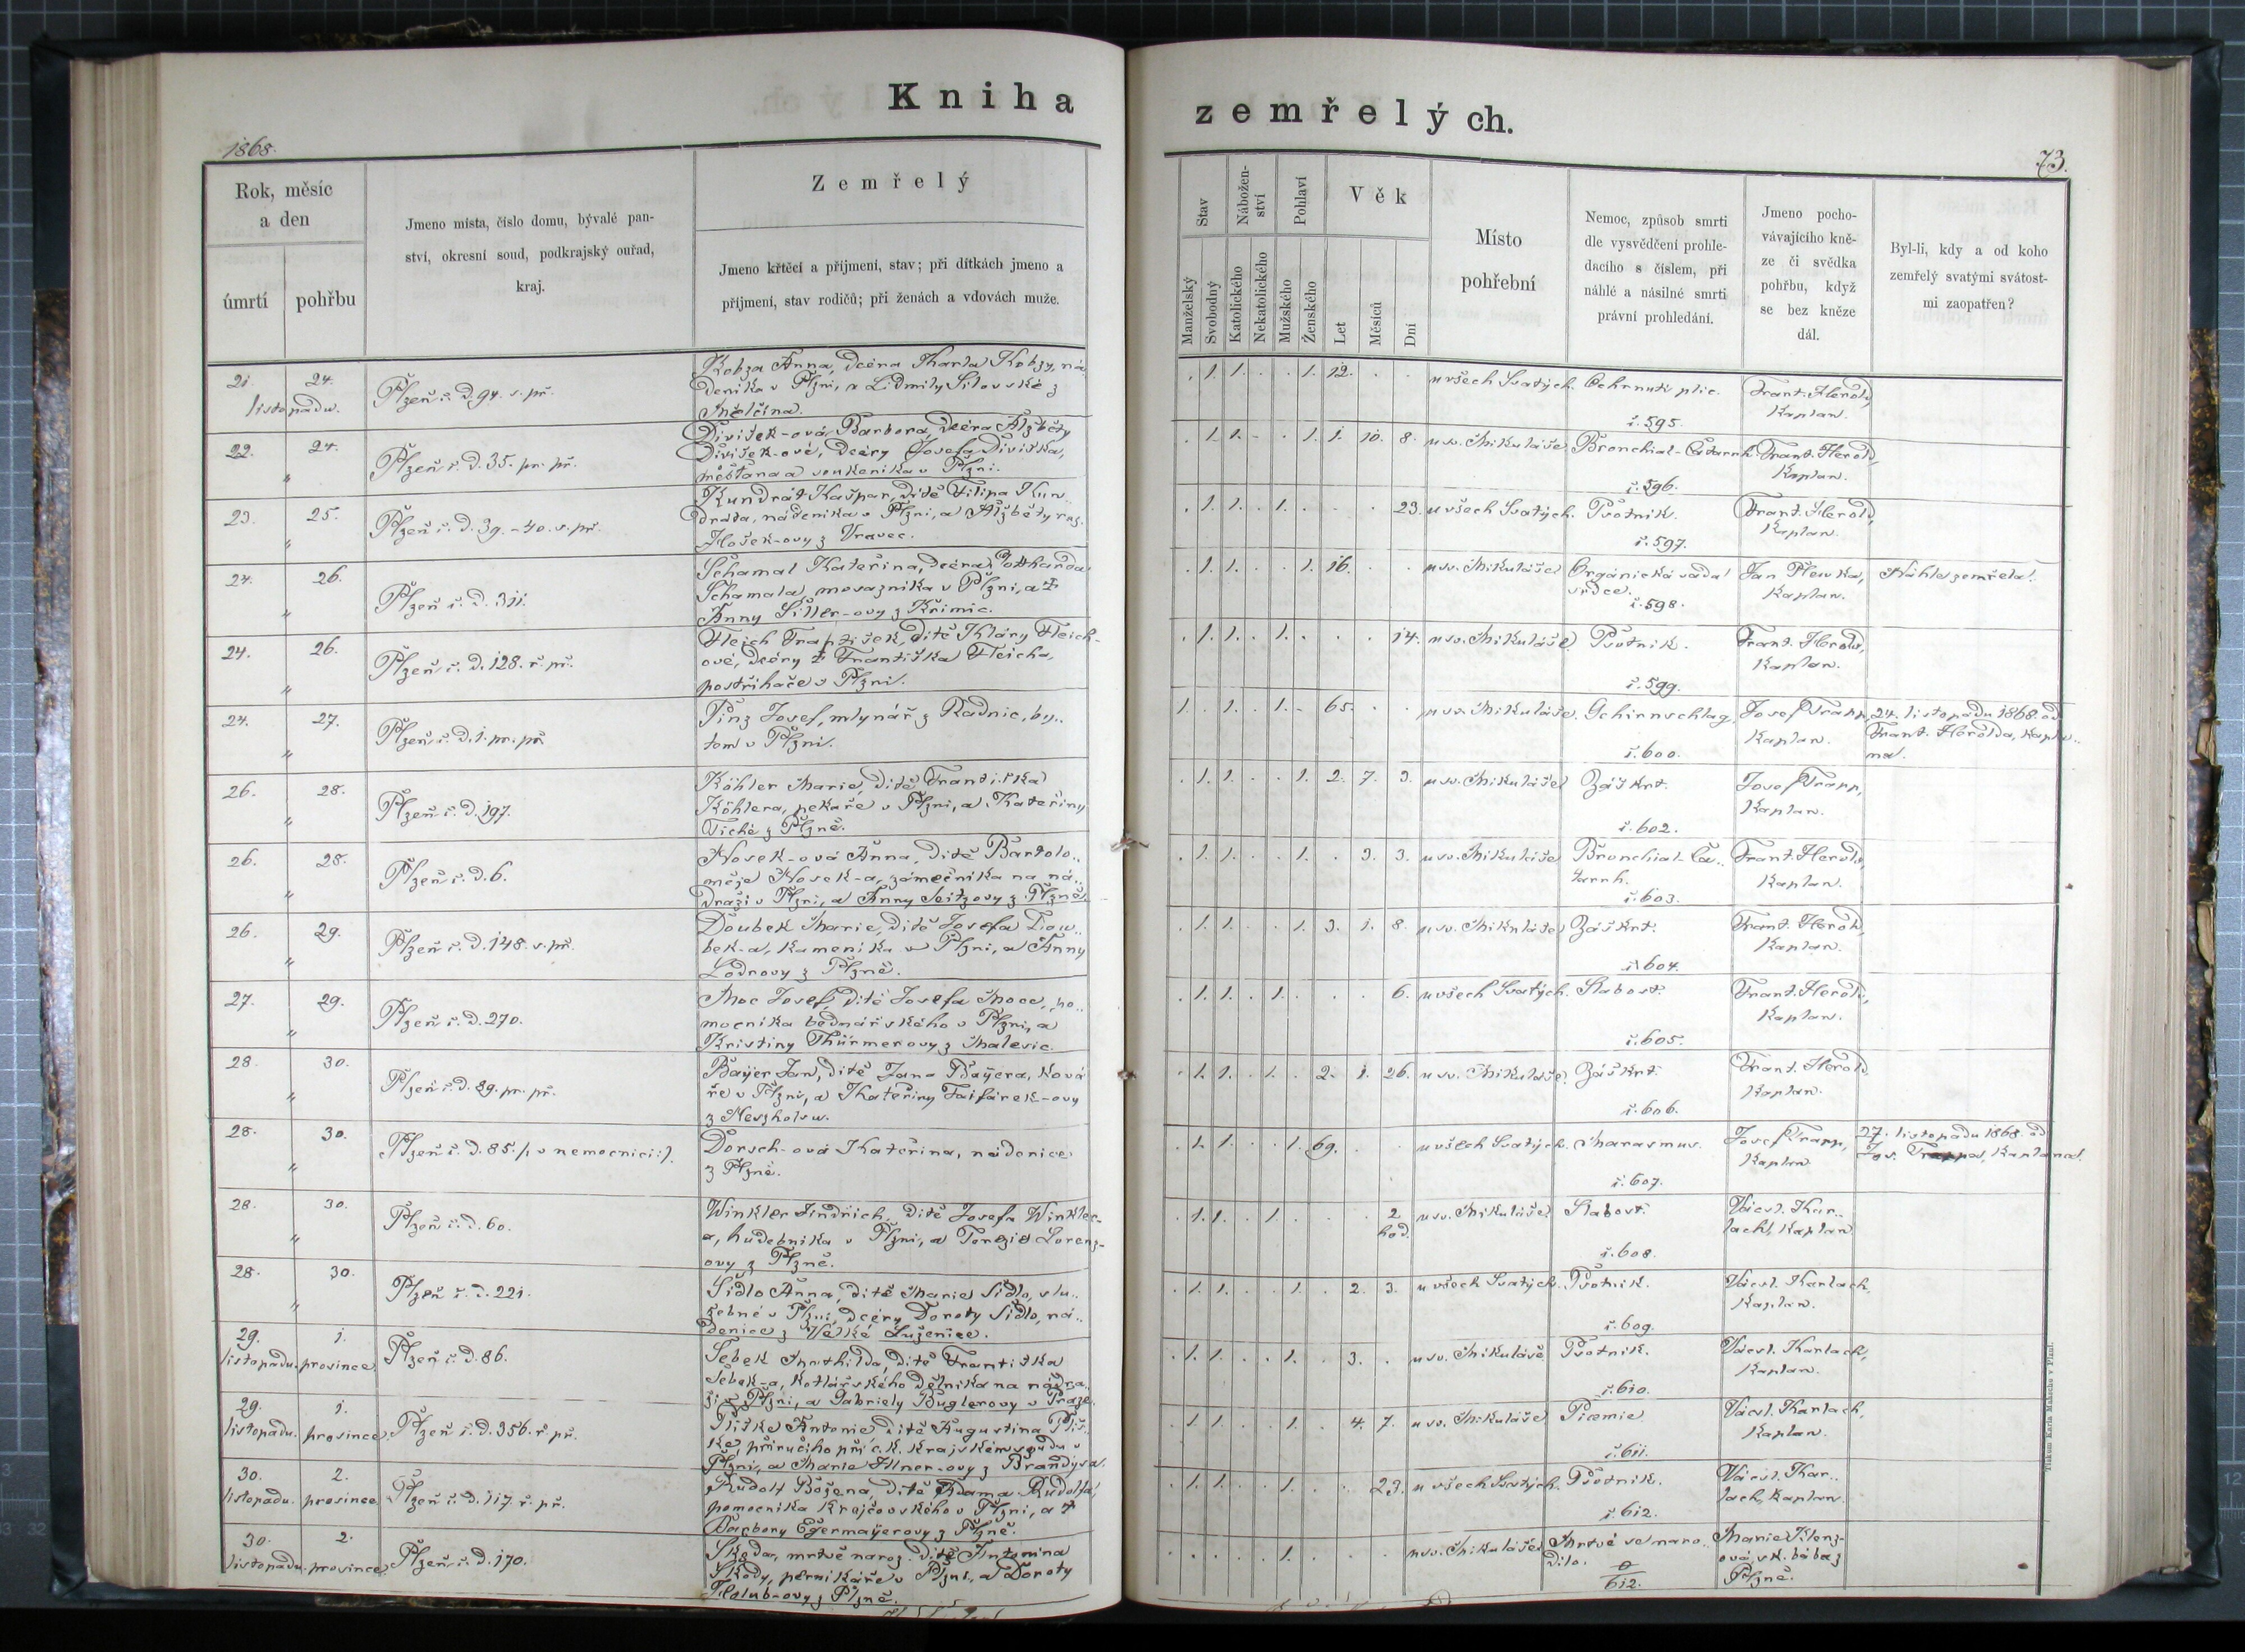 Kniha
zemřelých.
1868.
73.
Rok, měsíc
a den
úmrtí
pohřbu
Jmeno místa, číslo domu, bývalé pan-
ství, okresní soud, podkrajský ouřad,
kraj.
Zemřelý
Jmeno křtěcí a příjmení, stav; při dítkách jmeno a
příjmení, stav rodičů; při ženách a vdovách muže.
Stav
Nábožen-
ství
Pohlaví
Věk
Manželský
Svobodný
Katolického
Nekatolického
Mužského
Ženského
Let
Měsíců
Dní
Místo
pohřební
Nemoc, způsob smrti
dle vysvědčení prohle-
dacího s číslem, při
náhlé a násilné smrti
právní prohledání.
Jmeno pocho-
vávajícího kně-
ze či svědka
pohřbu, když
se bez kněze
dál.
Byl-li, kdy a od koho
zemřelý svatými svátost-
mi zaopatřen?
21. 24.
listopadu.
Plzeň č. d. 94. s. př.
Kobza Anna, dcéra Karla Kobzy, ná-
deníka v Plzni, a Lidmily Silovské z
. 1. 1. . . 1. 12. . .
u všech Svatých. Ochrnutí plic.
č. 595.
Frant. Herold,
Kaplan.
22. 24.
"
Plzeň č. d. 35. pr. př.
Divišek-ová Barbora, dcéra Alžběty
Divišek-ové, dcéry Josefa Diviška,
měšťana a soukeníka v Plzni.
. 1. 1. . . 1. 1. 10. 8.
u sv. Mikuláše. Bronchial-Catarrh.
č. 596.
Frant. Herold,
Kaplan.
23. 25.
"
Plzeň č. d. 39.-40. s. př.
Kundrát Kašpar, dítě Filipa Kun..
dráta, nádeníka v Plzni, a Alžběty roz.
Hošek-ovy z Vravec.
. 1. 1. . 1. . . . 23.
u všech Svatých. Psotník.
č. 597.
Frant. Herold,
Kaplan.
24. 26.
"
Plzeň č. d. 311.
Schamal Kateřina, dcéra Gottharda
Schamala, mosazníka v Plzni, a †
Anny Siller-ovy z Křimic.
. 1. 1. . . 1. 16. . .
u sv. Mikuláše Orgánická vada
srdce.
č. 598.
Jan Plewka,
Kaplan.
Náhle zemřela.
24. 26.
"
Plzeň č. d. 128. ř. př.
Fleich František, dítě Kláry Fleich-
ové, dcéry † Františka Fleicha,
postřihače v Plzni.
. 1. 1. . 1. . . . 14.
u sv. Mikuláše Psotník.
č. 599.
Frant. Herold,
Kaplan.
24. 27.
"
Plzeň č. d. 1. pr. př.
Pinz Josef, mlynář z Radnic, by..
tem v Plzni.
1. . 1. . 1. . 65. . .
u sv. Mikuláše. Gehirnschlag.
č. 600.
Josef Trapp,
Kaplan.
24. listopadu 1868. od
Frant. Herolda, Kapla..
na.
26. 28.
"
Plzeň č. d. 197.
Köhler Marie, dítě Františka
Köhlera, pekaře v Plzni, a Kateřiny
Tiché z Plzně.
. 1. 1. . . 1. 2. 7. 3.
u sv. Mikuláše Záškrt.
č. 602.
Josef Trapp,
Kaplan.
26. 28.
"
Plzeň č. d. 6.
Nosek-ová Anna, dítě Bartolo..
měje Nosek-a, zámečníka na ná..
draží v Plzni, a Anny Seitzovy z Plzně.
. 1. 1. . . 1. . 3. 3.
u sv. Mikuláše Bronchial-Ca..
tarrh.
č. 603.
Frant. Herold,
Kaplan.
26. 29.
"
Plzeň č. d. 148. s. př.
Doubek Marie, dítě Josefa Dou..
bek-a, kameníka v Plzni, a Anny
Lodrovy z Plzně.
. 1. 1. . . 1. 3. 1. 8.
u sv. Mikuláše Záškrt.
č. 604.
Frant. Herold,
Kaplan.
27. 29.
"
Plzeň č. d. 270.
Moc Josef, dítě Josefa Moce, po..
mocníka bednářského v Plzni, a
Kristiny Thürmerovy z Malesic.
. 1. 1. . 1. . . . 6.
u všech Svatých. Slabost.
č. 605.
Frant. Herold,
Kaplan.
28. 30.
"
Plzeň č. d. 89. pr. př.
Bayer Jan, dítě Jana Bayera, ková
ře v Plzni, a Kateřiny Faifárek-ovy
. 1. 1. . 1. . 2. 1. 26.
u sv. Mikuláše. Záškrt.
č. 606.
Frant. Herold
Kaplan.
28. 30.
"
Plzeň č. d. 85. /: v nemocnici :/.
Dorsch-ová Kateřina, nádenice
z Plzně.
. 1. 1. . . 1. 69. . .
u všech Svatých. Marasmus.
č. 607.
Josef Trapp,
Kaplan
27. listopadu 1868. od
Jos. Trappa, Kaplana.
28. 30.
"
Plzeň č. d. 60.
Winkler Jindřich, dítě Josefa Winkler-
a, hudebníka v Plzni, a Terezie Lorenz-
ovy z Plzně.
. 1. 1. . 1. . . . 2
hod.
u sv. Mikuláše Slabost.
č. 608.
Vácsl. Kar..
lach, Kaplan
28. 30.
"
Plzeň č. d. 221.
Sidlo Anna, dítě Marie Sidlo, slu..
žebné v Plzni, dcéry Doroty Sidlo, ná..
denice z Velké Luženice.
. 1. 1. . . 1. . 2. 3.
u všech Svatých. Psotník.
č. 609.
Vácsl. Karlach,
Kaplan.
29. 1.
listopadu. prosince.
Plzeň č. d. 86.
Šebek Mathilda, dítě Františka
Šebek-a, kotlářského dělníka na nádra..
ží v Plzni, a Gabriely Buglerovy v Praze.
. 1. 1. . . 1. . 3. .
u sv. Mikuláše Psotník.
č. 610.
Vácsl. Karlach,
Kaplan.
29. 1.
listopadu. prosince.
Plzeň č. d. 356. ř. př.
Pliške Antonie dítě Augustina Pliš..
ke, příručího při c. k. krajském soudu v
Plzni, a Marie Illner-ovy z Brandýsa.
. 1. 1. . . 1. . 4. 7.
u sv. Mikuláše Picemie
č. 611.
Vácsl. Karlach,
Kaplan.
30. 2.
listopadu. prosince
Plzeň č. d. 117. ř. př.
Rudolf Božena, dítě Adama Rudolfa,
pomocníka krejčovského v Plzni, a †
Barbory Egermayerovy z Plzně.
. 1. 1. . . 1. . . 23.
u všech Svatých. Psotník.
č. 612.
Vácsl. Kar..
lach, Kaplan.
30. 2.
listopadu. prosince.
Plzeň č. d. 170.
Škoda, mrtvě naroz. dítě Antonína
Škody, perníkáře v Plzni, a Doroty
Holub-ovy z Plzně.
u sv. Mikuláše Mrtvě se naro..
dilo.
0
612.
Marie Klenz-
ová, zk. bába z
Plzně.
Tiskem Karla Maasche v Plzni.